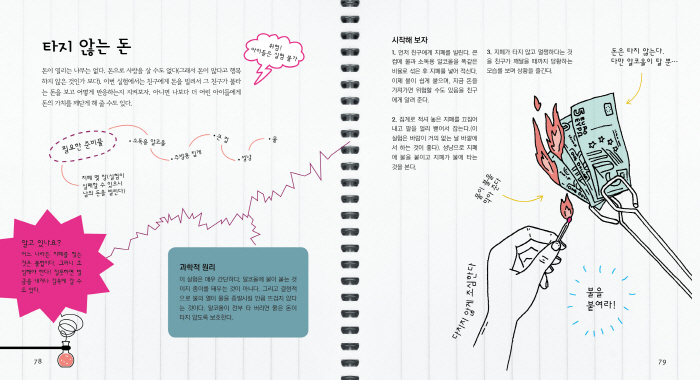 타지 않는 돈
위험!
아이들은 실험 불가
돈이 열리는 나무는 없다. 돈으로 사랑을 살 수도 없다(그래서 돈이 많다고 행복
하지 않은 것인가 보다). 이번 실험에서는 친구에게 돈을 빌려서 그 친구가 불타
는 돈을 보고 어떻게 반응하는지 지켜보자. 아니면 나보다 더 어린 아이들에게
돈의 가치를 깨닫게 해 줄 수도 있다.
필요한 준비물
• 소독용 알코올
• 주방용 집게
• 큰 컵
• 성냥
• 물
지폐 몇 장(실험이
실패할 수 있으니
남의 돈을 빌린다)
알고 있나요?
과학적 원리
이 실험은 매우 간단하다. 알코올에 불이 붙는 것
이지 종이를 태우는 것이 아니다. 그리고 결정적
으로 불의 열이 물을 증발시킬 만큼 뜨겁지 않다
는 것이다. 알코올이 전부 타 버리면 물은 돈이
타지 않도록 보호한다.
78
시작해 보자
1. 먼저 친구에게 지폐를 빌린다. 큰
컵에 물과 소독용 알코올을 똑같은
비율로 섞은 후 지폐를 넣어 적신다.
이제 불이 쉽게 붙으며, 지금 돈을
가져가면 위험할 수도 있음을 친구
에게 알려 준다.
2. 집게로 적셔 놓은 지폐를 끄집어
내고 팔을 멀리 뻗어서 잡는다.(이
실험은 바람이 거의 없는 날 바깥에
서 하는 것이 좋다). 성냥으로 지폐
에 불을 붙이고 지폐가 불에 타는
것을 본다.
3. 지폐가 타지 않고 멀쩡하다는 것
을 친구가 깨달을 때까지 당황하는
모습을 보며 상황을 즐긴다.
돈은 타지 않는다.
다만 알코올이 탈 뿐…
물이 불을
막아 준다
다치지 않게 조심한다
불을
붙여라!
79